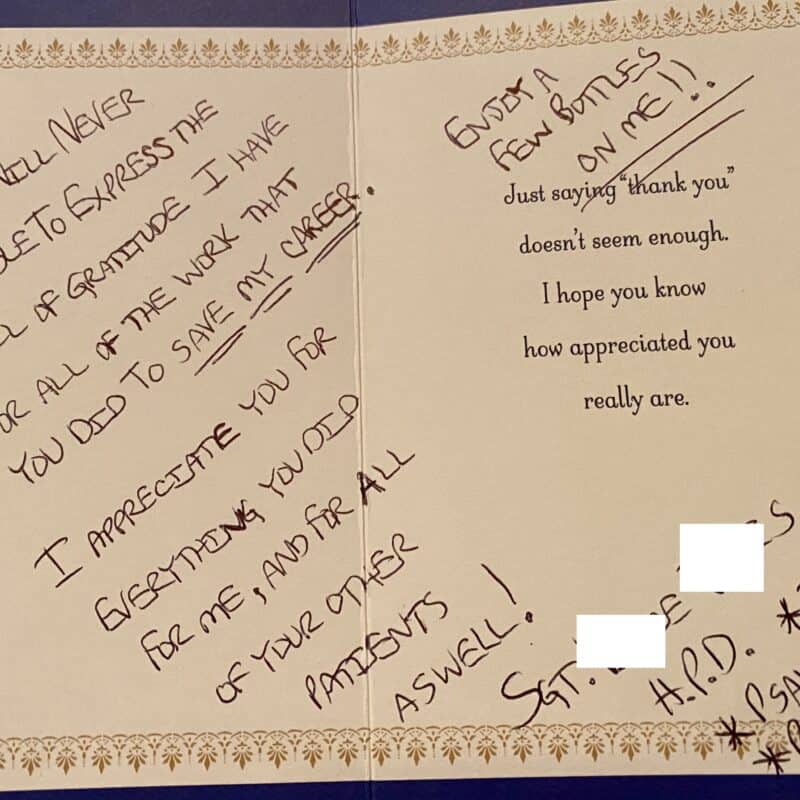 NEVER
TO EXPRESS THE
OF GRATITUDE I HAVE
ALL OF THE WORK THAT
YOU DID TO SAVE MY CAREER.
I APPRECIATE YOU FOR
EVERYTHING YOU DID
FOR ME, AND FOR ALL
OF YOUR OTHER
PATIENTS
ASWELL!
ENJOY A
FEW BOTTLES
ON ME!!
Just saying “thank you”
doesn't seem enough.
I hope you know
how appreciated you
really are.
SGT.
H.P.D. *
*PSA
*